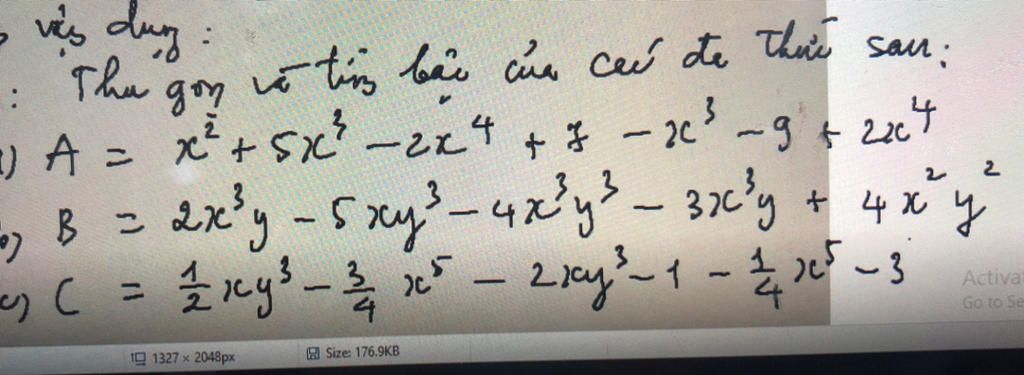 vận dụng:
: Thu gọn và tìm bậc của các đa thức sau:
) A = x² + 5x³ - 2x⁴ + 7 - x³ - 9 + 2x⁴
b) B = 2x³y - 5xy³ - 4x³y³ - 3x³y + 4x²y²
c) C = 1/2 xy³ - 3/4 x⁵ - 2xy³ - 1 - 1/4 x⁵ - 3
Activa
Go to Se
1327 × 2048px Size: 176.9KB